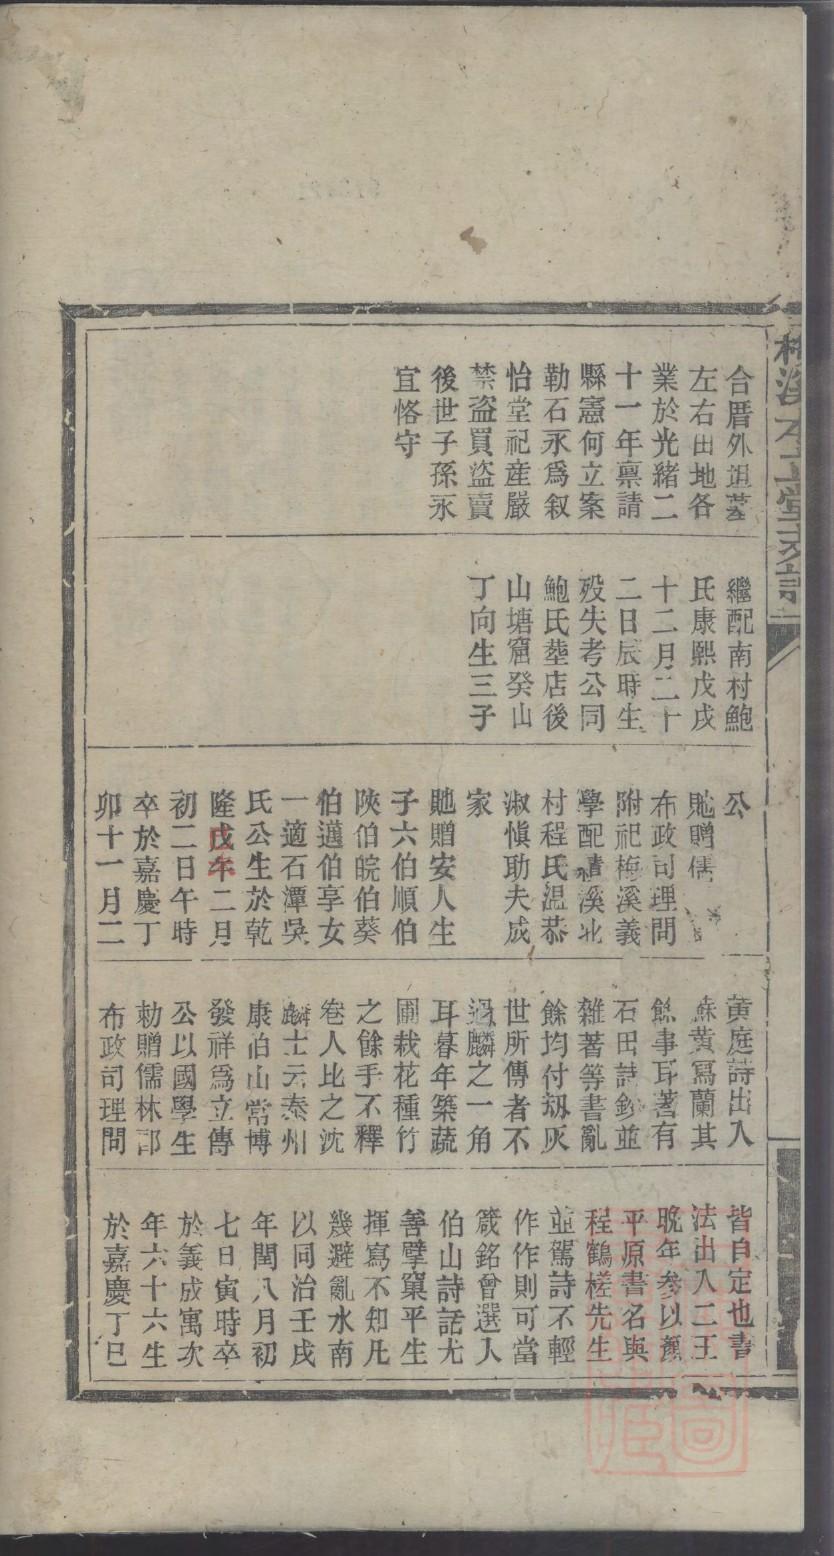 合厝外祖墓
左右田地各
業於光緒二
十一年禀請
縣憲何立案
勒石永爲叙
怡堂祀産嚴
禁盜買盜賣
後世子孫永
宜恪守
繼配南村鮑
氏康熙戊戌
十二月二十
二日辰時生
殁失考公同
鮑氏塟店後
山塘窟癸山
丁向生三子
公
貤贈儒
布政司理問
附祀梅溪義
學配清溪北
村程氏温恭
淑慎助夫成
家
貤贈安人生
子六伯順伯
陝伯皖伯葵
伯邁伯享女
一適石潭吳
氏公生於乾
隆戊午二月
初二日午時
卒於嘉慶丁
卯十一月二
黄庭詩出入
蘇黄寫蘭其
餘事耳著有
石田詩鈔並
雜著等書亂
餘均付刼灰
世所傳者不
過麟之一角
耳暮年築蔬
圃栽花種竹
之餘手不釋
卷人比之沈
麟士云泰州
康伯山常博
發祥爲立傳
公以國學生
勅贈儒林郎
布政司理問
皆自定也書
法出入二王
晚年參以顏
平原書名與
程鶴槎先生
並駕詩不輕
作作則可當
箴銘曾選入
伯山詩話尤
善擘窠平生
揮寫不知凡
幾避亂水南
以同治壬戌
年閏八月初
七日寅時卒
於義成寓次
年六十六生
於嘉慶丁巳